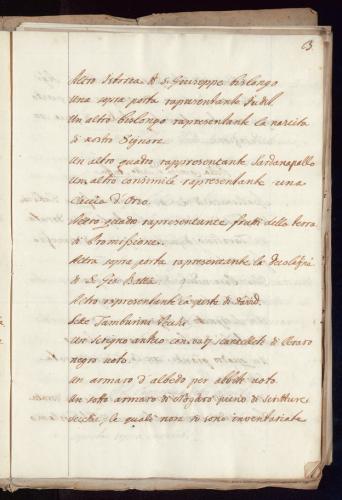 63
Altro istoria di S. Giuseppe bislongo
Una sopra porta rapresentante Judit
Un altro bislongo rapresentante la nascita
di nostro Signore
Un altro quadro rappresentante Sardanapallo
Un altro consimile rapresentante una
Caccia d'Orso
Altro quadro rapresentante frutti della terra
di Promissione
Altra sopra porta rapresentante la Decolaz.ne
di S. Gio Batta
Altro rapresentante la peste di David
Sette Tamburini Vecchi
Un scrigno antico con varij scancelletti di
negro voto
Un armaro d'albedo per abbiti voto
Un sotto armaro di nogaro pieno di scritture
vecchie, le quali non si sono inventariate